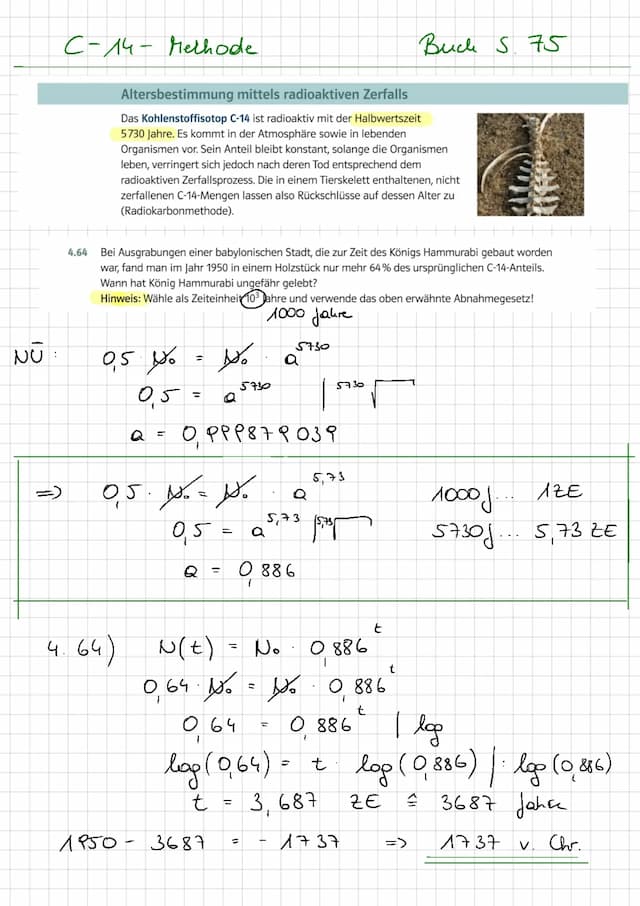 C-14-Methode Buch S. 75
Altersbestimmung mittels radioaktiven Zerfalls
Das Kohlenstoffisotop C-14 ist radioaktiv mit der Halbwertszeit
5730 Jahre. Es kommt in der Atmosphäre sowie in lebenden
Organismen vor. Sein Anteil bleibt konstant, solange die Organismen
leben, verringert sich jedoch nach deren Tod entsprechend dem
radioaktiven Zerfallsprozess. Die in einem Tierskelett enthaltenen, nicht
zerfallenen C-14-Mengen lassen also Rückschlüsse auf dessen Alter zu
(Radiokarbonmethode).
4.64 Bei Ausgrabungen einer babylonischen Stadt, die zur Zeit des Königs Hammurabi gebaut worden
war, fand man im Jahr 1950 in einem Holzstück nur mehr 64% des ursprünglichen C-14-Anteils.
Wann hat König Hammurabi ungefähr gelebt?
Hinweis: Wähle als Zeiteinheit 10³ Jahre und verwende das oben erwähnte Abnahmegesetz!
1000 Jahre
NÜ: 0,5 · N₀ = N₀ · a^5730
0,5 = a^5730 | 5730√
a = 0,999879039
=> 0,5 · N₀ = N₀ · a^5,73 1000j... 1ZE
0,5 = a^5,73 | 5,73√ 5730j... 5,73 ZE
a = 0,886
4.64) N(t) = N₀ · 0,886^t
0,64 · N₀ = N₀ · 0,886^t
0,64 = 0,886^t | log
log(0,64) = t · log(0,886) | : log(0,886)
t = 3,687 ZE ≙ 3687 Jahre
1950 - 3687 = -1737 => 1737 v. Chr.